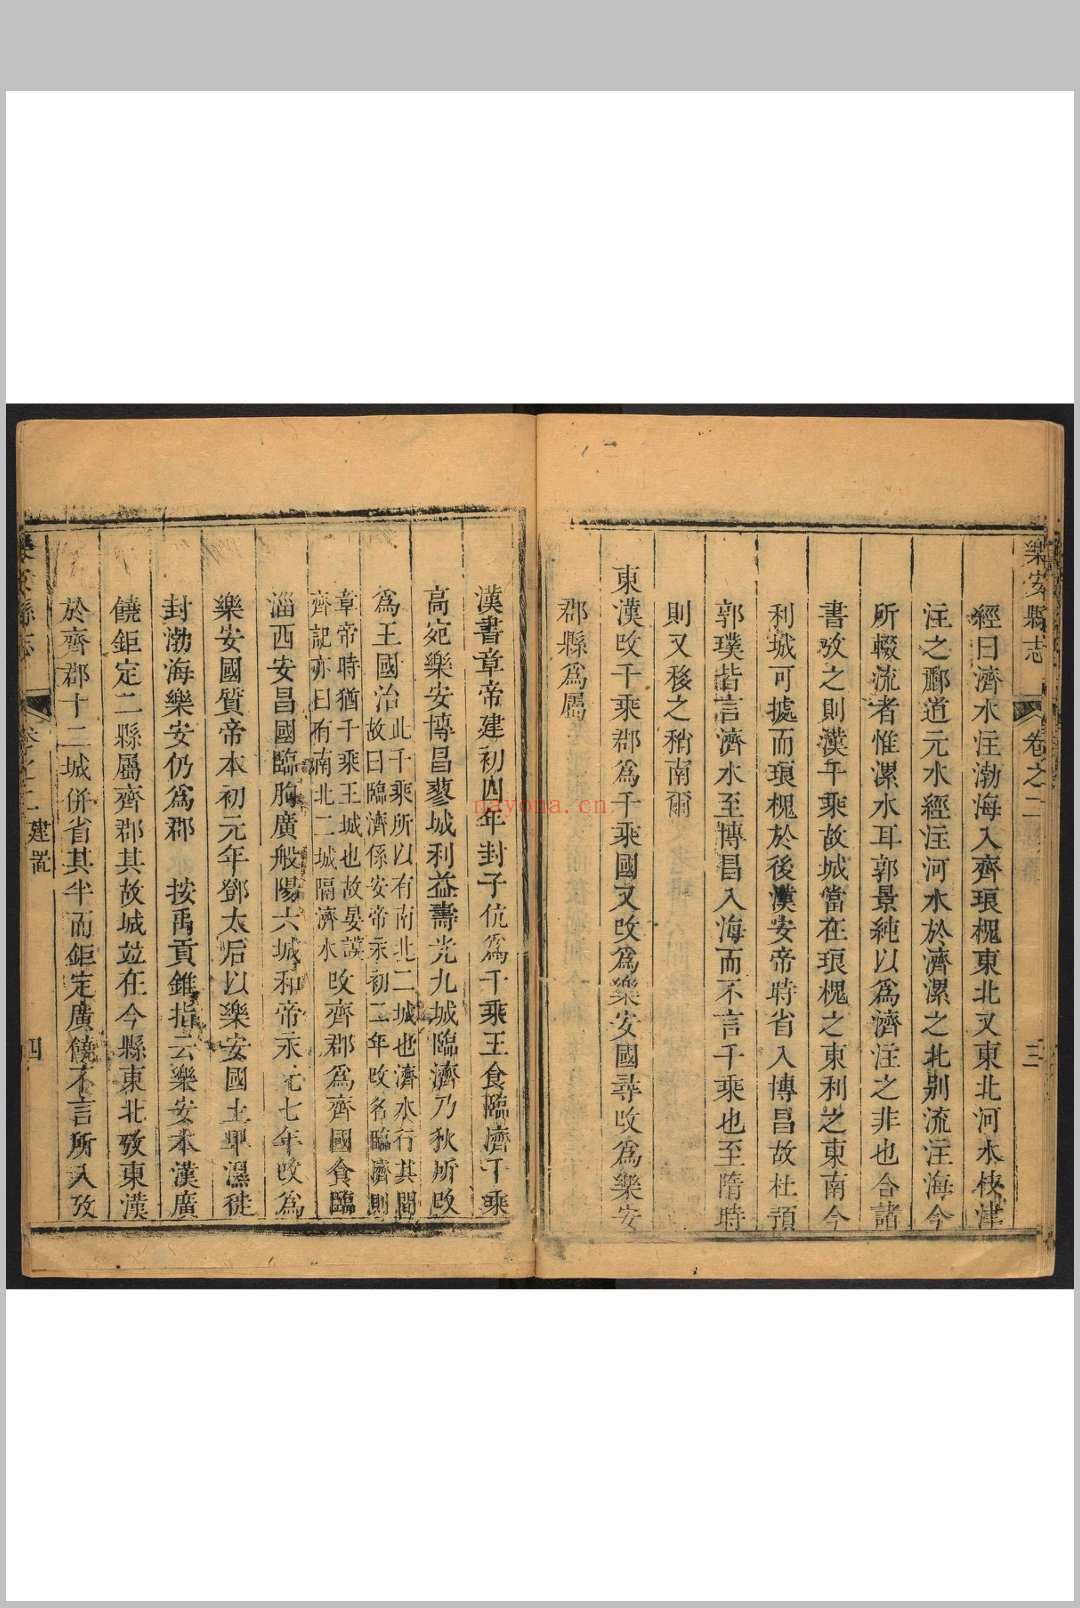 樂安縣志 卷之二 三
經曰濟水注渤海入齊琅槐東北又東北河水枝津
注之酈道元水經注河水於濟漯之北别流注海今
所輟流者惟漯水耳郭景純以為濟注之非也合諸
書攷之則漢千乘故城當在琅槐之東利之東南今
利城可據而琅槐於後漢安帝時省入博昌故杜預
郭璞皆言濟水至博昌入海而不言千乘也至隋時
則又移之稍南爾
東漢改千乘郡為千乘國又改為樂安國尋改為樂安
郡縣為屬
漢書章帝建初四年封子伉為千乘王食臨濟千乘
高宛樂安博昌蓼城利益壽光九城臨濟乃狄所改
為王國治
此千乘所以有南北二城也濟水行其間
故曰臨濟係安帝永初二年改名臨濟則
章帝時猶千乘王城也故晏謨
齊記亦曰有南北二城隔濟水
改齊郡為齊國食臨
淄西安昌國臨朐廣般陽六城和帝永元七年改為
樂安國質帝本初元年鄧太后以樂安國土卑濕徙
封渤海樂安仍為郡 按禹貢錐指云樂安本漢廣
饒鉅定二縣屬齊郡其故城竝在今縣東北攷東漢
於齊郡十二城併省其半而鉅定廣饒不言所入攷
樂安縣志 卷之二 建置 四
nayona.cn